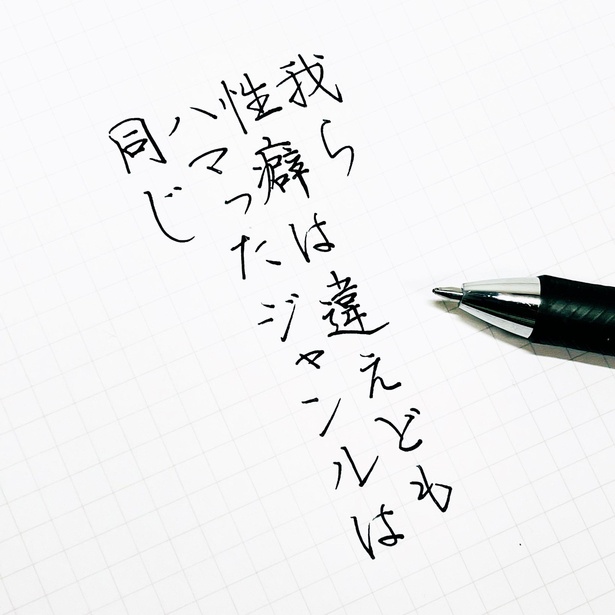 我ら
性癖は違えども
ハマったジャンルは
同じ